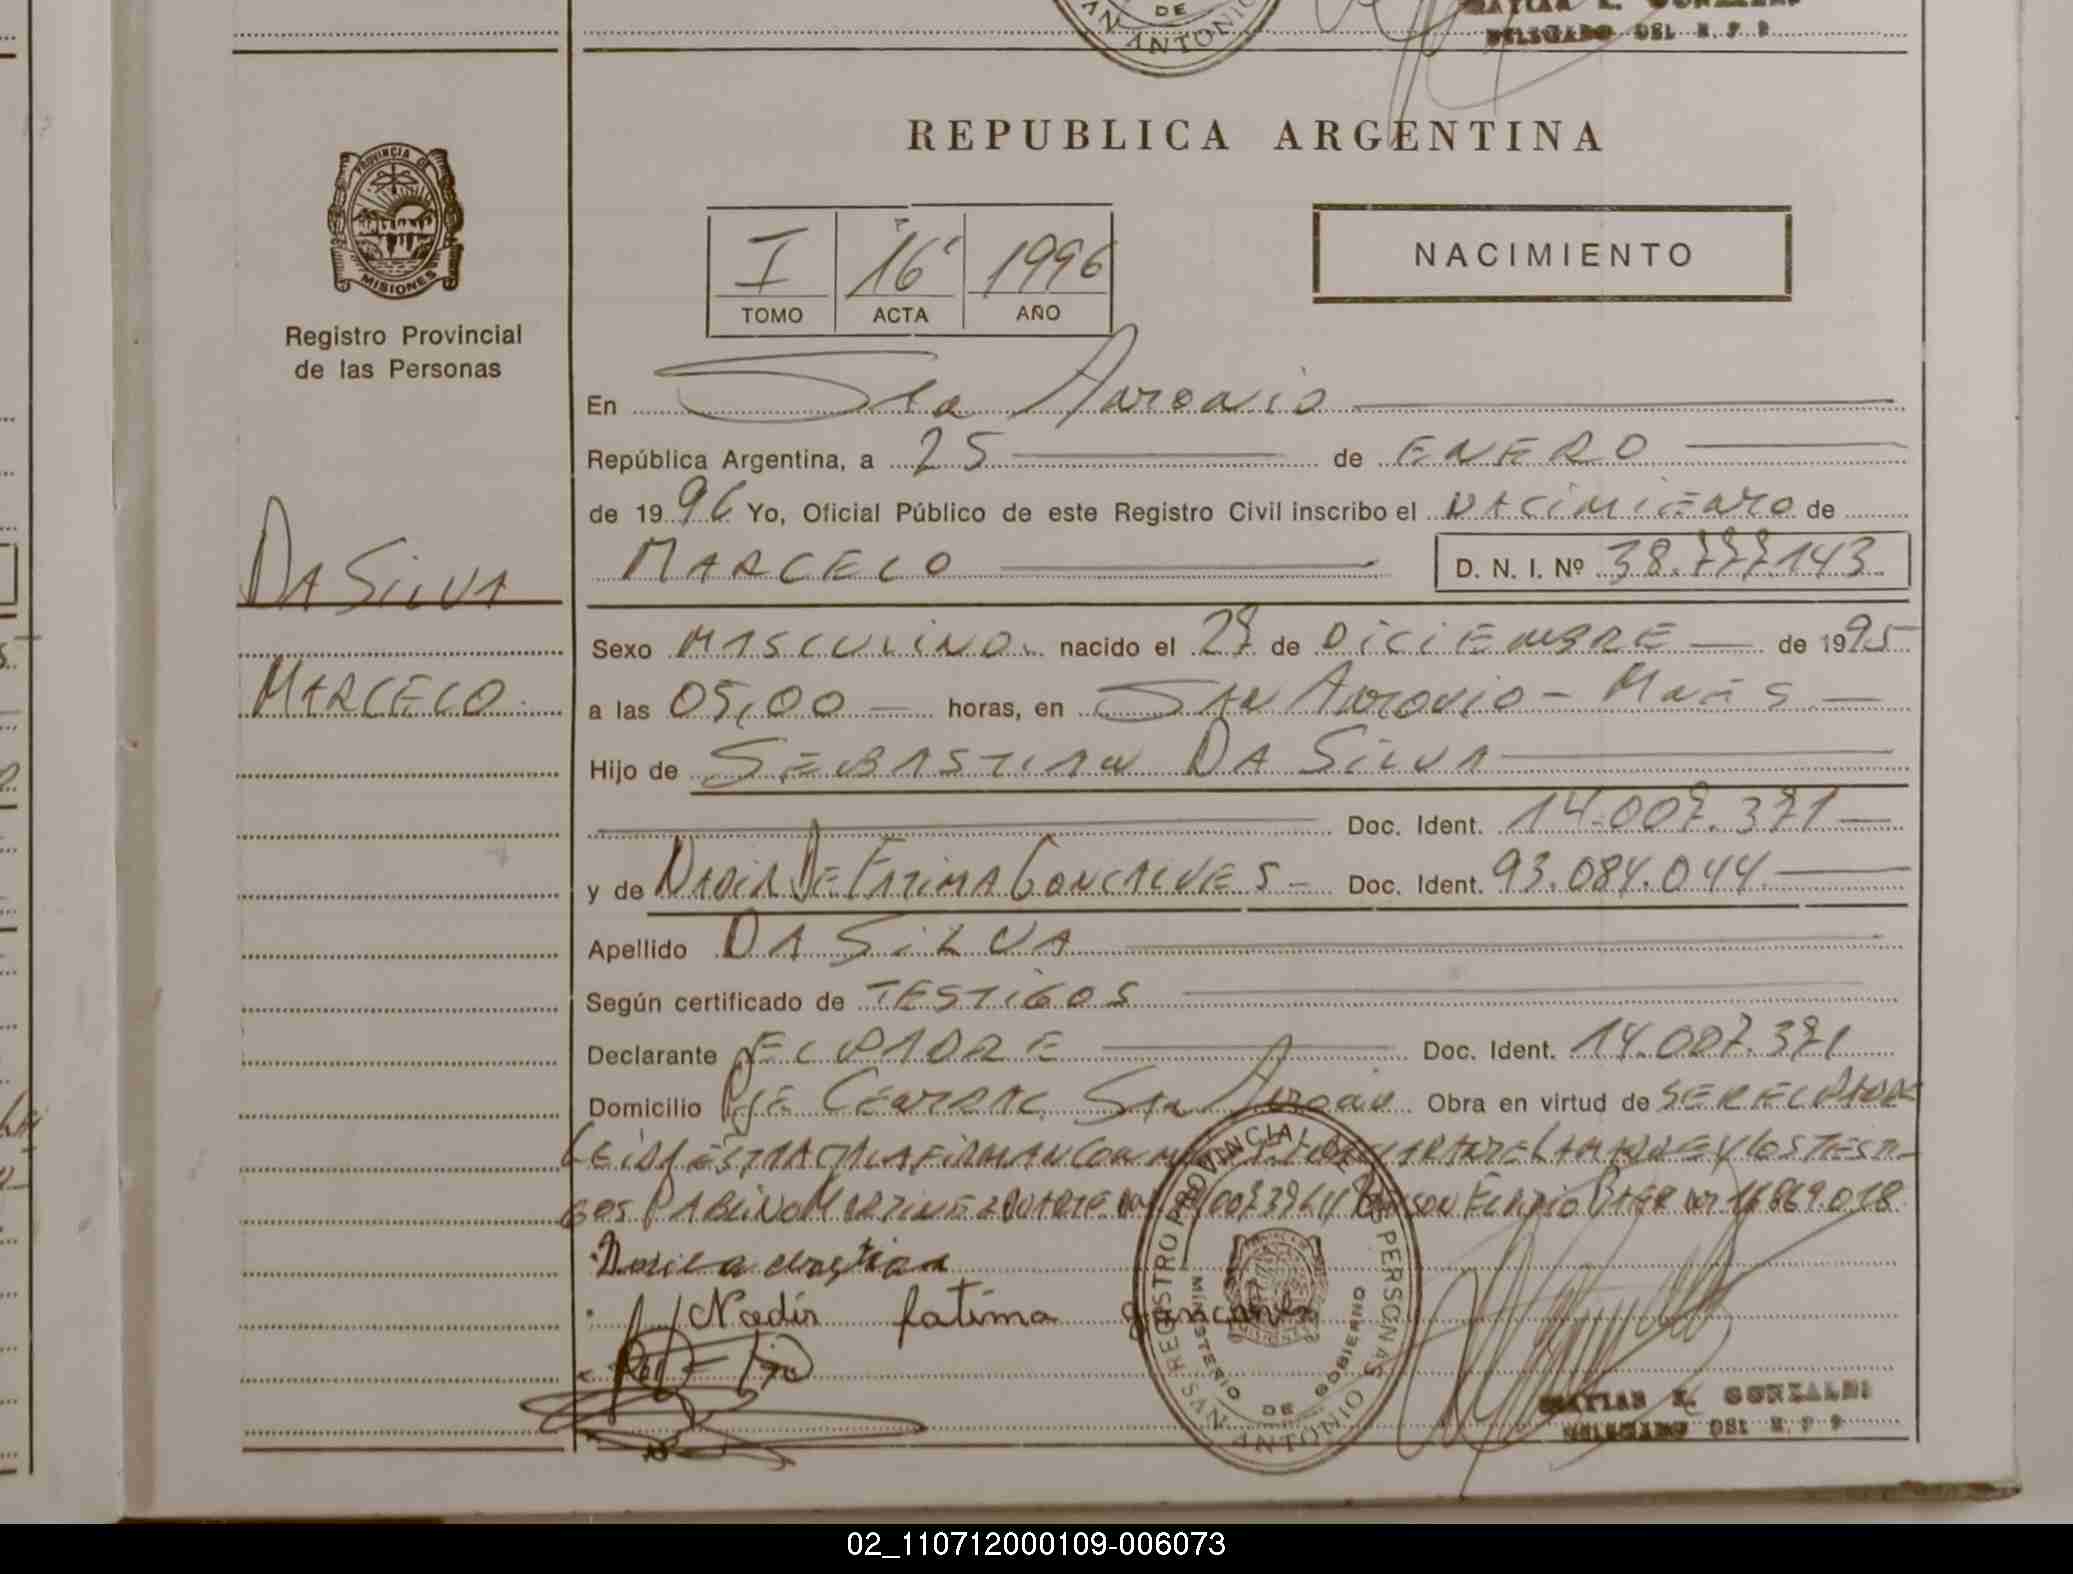 DE
SAN ANTONIO
DELEGADO DEL R. P. P.
REPUBLICA ARGENTINA
PROVINCIA DE
MISIONES
Registro Provincial
de las Personas
I 16 1996
TOMO ACTA AÑO
NACIMIENTO
En San Antonio
República Argentina, a 25 de ENERO
de 1996 Yo, Oficial Público de este Registro Civil inscribo el NACIMIENTO de
DA SILVA
MARCELO D. N. I. Nº 38.777.143
Sexo MASCULINO. nacido el 27 de DICIEMBRE de 1995
MARCELO
a las 05,00 horas, en SAN ANTONIO - Mnes
Hijo de SEBASTIAN DA SILVA
Doc. Ident. 14.007.371
y de NADIR DE FATIMA GONCALVES Doc. Ident. 93.084.044
Apellido DA SILVA
Según certificado de TESTIGOS
Declarante EL PADRE Doc. Ident. 14.007.371
Domicilio Pje CENTRAL San Antonio Obra en virtud de SER EL PADRE
LEIDA ESTA ACTA LA FIRMAN CON MIGO EL DECLARANTE LA MADRE Y LOS TESTI-
GOS MARTINEZ 16.869.018
Nadir fatima
REGISTRO PROVINCIAL DE LAS PERSONAS
MINISTERIO DE GOBIERNO
SAN ANTONIO
MATIAS E. GONZALEZ
DELEGADO DEL R. P. P.
02_110712000109-006073